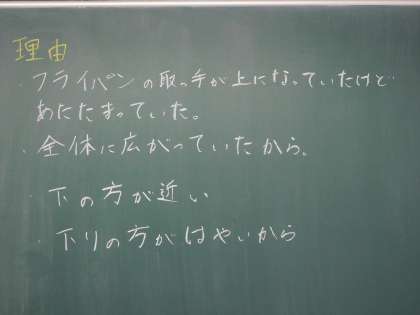 理由
・フライパンの取っ手が上になっていたけど
あたたまっていた。
・全体に広がっていたから。
・下の方が近い
・下りの方がはやいから